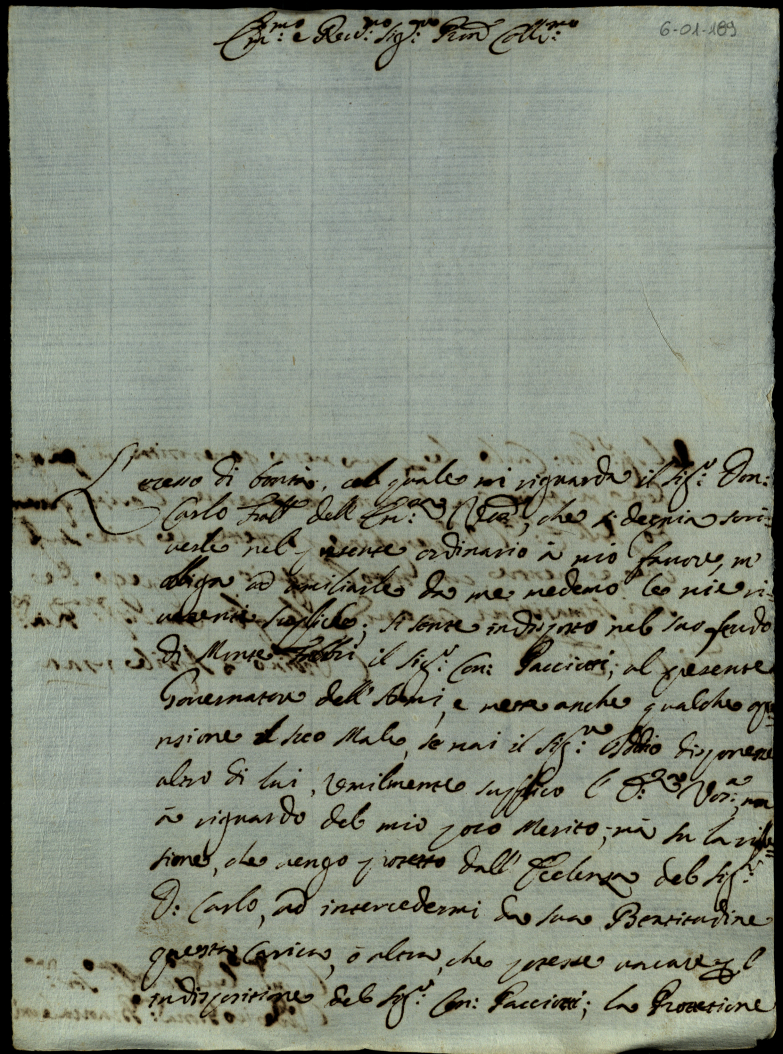 6-01-189
Em:mo e Rev:mo Sig:re Pron Coll:mo
L'eccesso di bontà, col quale mi riguarda il Sig:r Don:
Carlo Fratt dell'Em:za Vra, che si degnia scri-
verle nel presente ordinario à mio favore, m'
obliga ad umiliarle da me medemo le mie ri-
verenti suppliche; si sente indisposto nel suo feudo
di Monte Fabri il Sig:r Con: Pacciotti, al presente
Governatore dell'Armi, e vera anche qualche op-
nsione il suo Male, se mai il Sig:re Iddio disponesse
altro di lui, Umilmente supplico l'E:za Vos:a, non
à riguardo del mio poco Merito, mà su la rifles-
sione, che vengo protetto dall'Eccelenza del Sig:r
D: Carlo, ad intercedermi da sua Beatitudine
questa Carica, ò altra, che potesse vacare p l'
indisposizione del Sig:r Con: Pacciotti; la Protetione